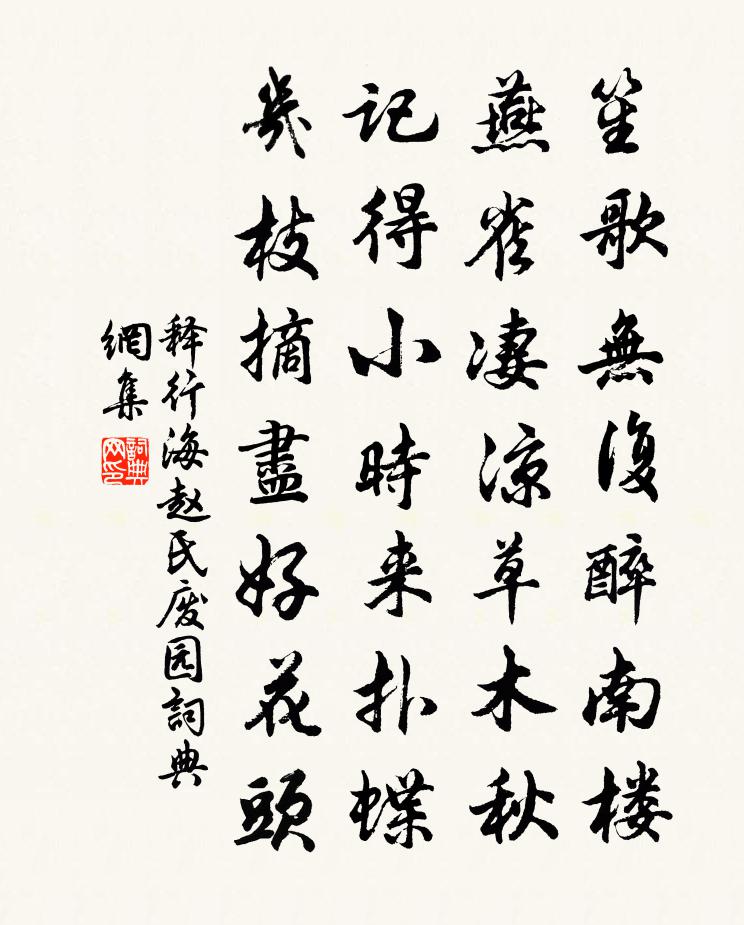 笙歌無復醉南楼
燕雀凄涼草木秋
記得小時来扑蝶
幾枝摘盡好花頭
释行海赵氏废园詞典
網集
詞典
网印